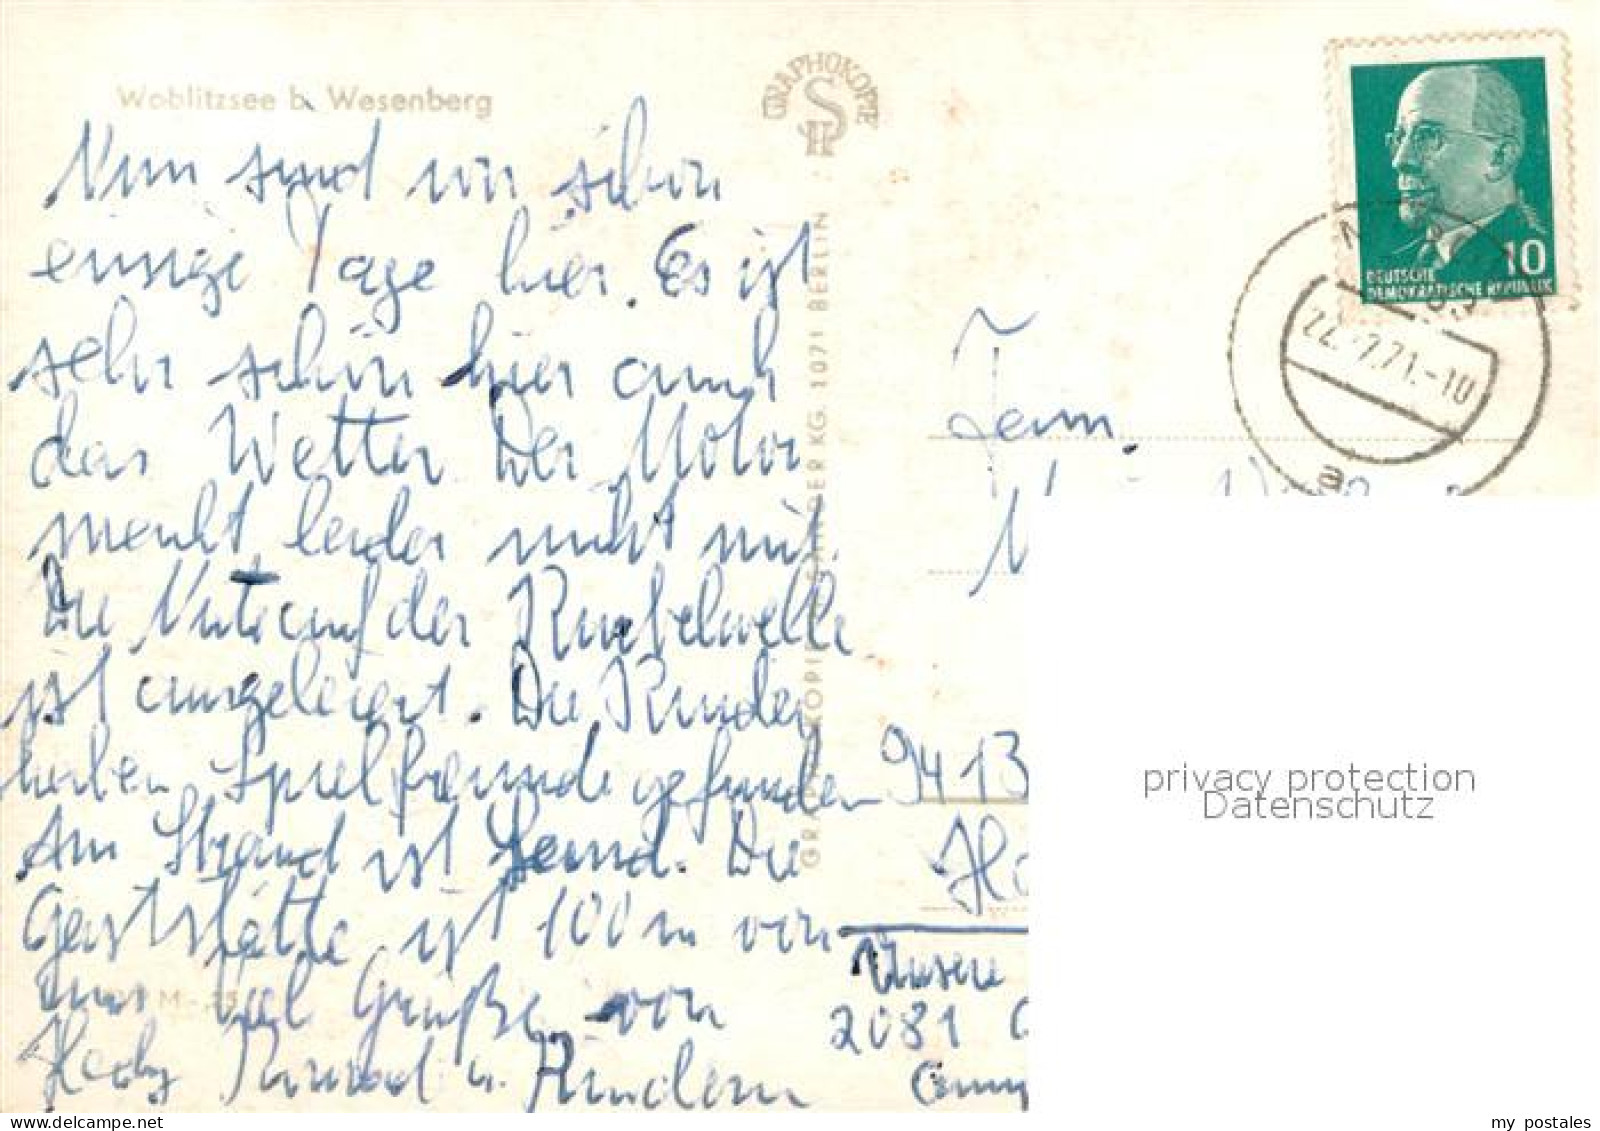 Woblitzsee b. Wesenberg
Nun sind wir schon
einige Tage hier. Es ist
sehr schön hier auch
das Wetter. Der Motor
macht leider nicht mit.
Die Nute auf der Kurbelwelle
ist ausgeleiert. Die Kinder
haben Spielfreunde gefunden
Am Strand ist Sand. Die
Gaststätte ist 100 m von
uns. Viel Grüße von
Hedy u. Kindern
GRAPHOKOPIE
H S
GRAPHOKOPIE H. SANDER KG. 1071 BERLIN
10
DEUTSCHE
DEMOKRATISCHE REPUBLIK
22.-7.71.-10
Fam.
9413
Unsere
2081
privacy protection
Datenschutz
my postales